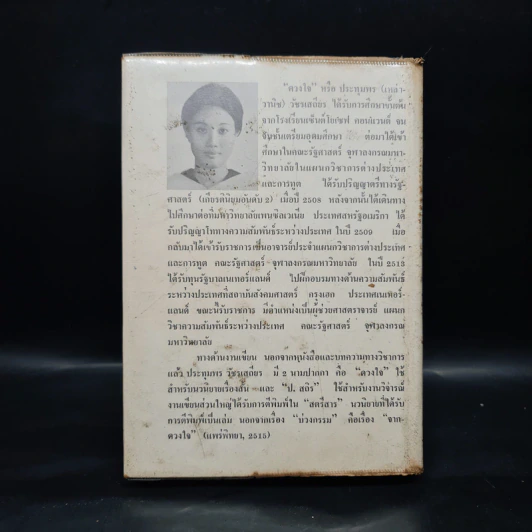 "ดวงใจ" หรือ ประทุมพร (เหล่า-
วานิช) วัชรเสถียร ได้รับการศึกษาขั้นต้น
จากโรงเรียนเซ็นต์โยเซฟ คอนเวนต์ จน
ชั้นเตรียมอุดมศึกษา ต่อมาได้เข้า
ศึกษาในคณะรัฐศาสตร์ จุฬาลงกรณมหา-
วิทยาลัยในแผนกวิชาการต่างประเทศ
และการทูต ได้รับปริญญาตรีทางรัฐ-
ศาสตร์ (เกียรตินิยมอันดับ 2) เมื่อปี 2508 หลังจากนั้นได้เดินทาง
ไปศึกษาต่อที่มหาวิทยาลัยเพนซิลเวเนีย ประเทศสหรัฐอเมริกา ได้
รับปริญญาโททางความสัมพันธ์ระหว่างประเทศ ในปี 2509 เมื่อ
กลับมาได้เข้ารับราชการเป็นอาจารย์ประจำแผนกวิชาการต่างประเทศ
และการทูต คณะรัฐศาสตร์ จุฬาลงกรณมหาวิทยาลัย ในปี 2513
ได้รับทุนรัฐบาลเนเธอร์แลนด์ ไปฝึกอบรมทางด้านความสัมพันธ์
ระหว่างประเทศที่สถาบันสังคมศาสตร์ กรุงเฮก ประเทศเนเธอร์-
แลนด์ ขณะนี้รับราชการ มีตำแหน่งเป็นผู้ช่วยศาสตราจารย์ แผนก
วิชาความสัมพันธ์ระหว่างประเทศ คณะรัฐศาสตร์ จุฬาลงกรณ
มหาวิทยาลัย
ทางด้านงานเขียน นอกจากหนังสือและบทความทางวิชาการ
แล้ว ประทุมพร วัชรเสถียร มี 2 นามปากกา คือ "ดวงใจ" ใช้
สำหรับนวนิยายเรื่องสั้น และ "ป. สถิร" ใช้สำหรับงานวิจารณ์
งานเขียนส่วนใหญ่ได้รับการตีพิมพ์ใน "สตรีสาร" นวนิยายที่ได้รับ
การตีพิมพ์เป็นเล่ม นอกจากเรื่อง "บ่วงกรรม" คือเรื่อง "จาก-
ดวงใจ" (แพร่พิทยา, 2515)